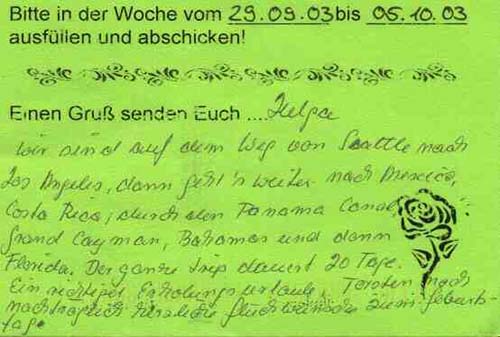 Bitte in der Woche vom 29.09.03 bis 05.10.03
ausfüllen und abschicken!
Einen Gruß senden Euch .... Helga
Wir sind auf dem Weg von Seattle nach
Los Angeles, dann geht's weiter nach Mexico,
Costa Rica, durch den Panama Canal,
Grand Cayman, Bahamas und dann
Florida. Der ganze Trip dauert 20 Tage.
Ein richtiger Erholungsurlaub! Torsten noch
nachträglich herzliche Glückwünsche zum Geburts-
tag.